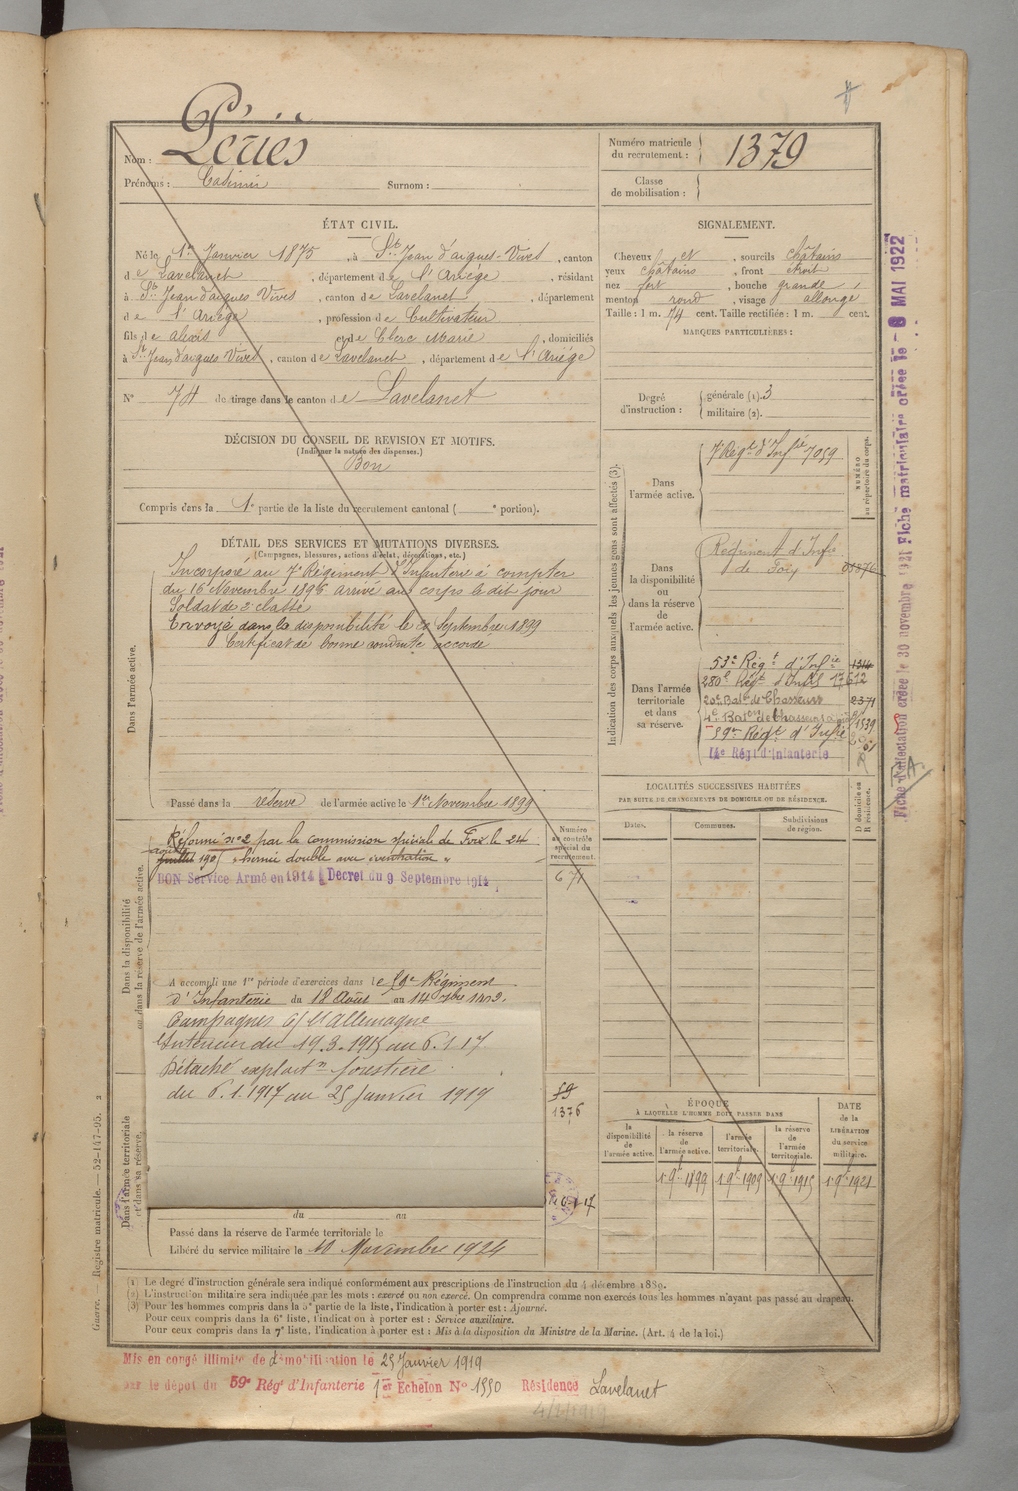 Nom : Périès
Prénoms : Casimir Surnom :
Numéro matricule du recrutement : 1379
Classe de mobilisation :
ÉTAT CIVIL.
Né le 1er Janvier 1875, à St Jean d'aigues-Vives, canton
de Lavelanet, département de l'Ariège, résidant
à St Jean d'aigues Vives, canton de Lavelanet, département
de l'Ariège, profession de Cultivateur
fils de alexis et de Clerc Marie, domiciliés
à St Jean d'aigues Vives, canton de Lavelanet, département de l'Ariége
N° 74 de tirage dans le canton de Lavelanet
SIGNALEMENT.
Cheveux et, sourcils châtains
yeux châtains, front étroit
nez fort, bouche grande
menton rond, visage allongé
Taille : 1 m. 74 cent. Taille rectifiée : 1 m. cent.
MARQUES PARTICULIÈRES :
Degré d'instruction : générale (1). 3
militaire (2).
DÉCISION DU CONSEIL DE REVISION ET MOTIFS.
(Indiquer la nature des dispenses.)
Bon
Compris dans la 1e partie de la liste du recrutement cantonal ( e portion).
DÉTAIL DES SERVICES ET MUTATIONS DIVERSES.
(Campagnes, blessures, actions d'éclat, décorations, etc.)
Dans l'armée active.
Incorporé au 7e Régiment d'Infanterie à compter
du 16 Novembre 1896 arrivé au corps le dit jour
Soldat de 2e classe
Envoyé dans la disponibilité le Septembre 1899
Certificat de bonne conduite accordé
Passé dans la réserve de l'armée active le 1er Novembre 1899
Indication des corps auxquels les jeunes gens sont affectés (3).
NUMÉRO au répertoire du corps.
Dans l'armée active.
7e Régt d'Infie 7059
Dans la disponibilité ou dans la réserve de l'armée active.
Régiment d'Infie
de Foix
Dans l'armée territoriale et dans sa réserve.
53e Régt d'Infie 1314
280e Régt d'Infie 17612
20e Batn de Chasseurs 2371
4e Baton de Chasseurs 1539
59e Régt d'Infie
14e Régt d'Infanterie
Dans la disponibilité ou dans la réserve de l'armée active.
Réformé n° 2 par la commission spéciale de Foix le 24
août
juillet 190 "hernie double avec éventration"
BON Service Armé en 1914 Décret du 9 Septembre 1914
Numéro au contrôle spécial du recrutement.
671
A accompli une 1re période d'exercices dans le 59e Régiment
d'Infanterie du 18 Août au 14
Campagnes c/ l'Allemagne
Intérieur du 19.3.1915 au 6.1.17
Détaché exploitn forestière
du 6.1.1917 au 25 Janvier 1919
59
1376
Dans l'armée territoriale et dans sa réserve.
du au
Passé dans la réserve de l'armée territoriale le
Libéré du service militaire le 10 Novembre 1924
LOCALITÉS SUCCESSIVES HABITÉES
PAR SUITE DE CHANGEMENTS DE DOMICILE OU DE RÉSIDENCE.
Dates. Communes. Subdivisions de région. D domicile ou R résidence.
ÉPOQUE
À LAQUELLE L'HOMME DOIT PASSER DANS
DATE de la LIBÉRATION du service militaire.
la disponibilité de l'armée active.
la réserve de l'armée active.
l'armée territoriale.
la réserve de l'armée territoriale.
1 9e 1899 1 9e 1909 1 9e 1915 1 9e 1921
(1) Le degré d'instruction générale sera indiqué conformément aux prescriptions de l'instruction du 4 décembre 1889.
(2) L'instruction militaire sera indiquée par les mots : exercé ou non exercé. On comprendra comme non exercés tous les hommes n'ayant pas passé au drapeau.
(3) Pour les hommes compris dans la 5e partie de la liste, l'indication à porter est : Ajourné.
Pour ceux compris dans la 6e liste, l'indication à porter est : Service auxiliaire.
Pour ceux compris dans la 7e liste, l'indication à porter est : Mis à la disposition du Ministre de la Marine. (Art. 4 de la loi.)
Guerre. — Registre matricule. — 52-147-95. 2
Mis en congé illimité de démobilisation le 25 Janvier 1919
par le dépôt du 59e Régt d'Infanterie 1er Echelon N° 1550 Résidence Lavelanet
Fiche d'affectation créée le 30 novembre 1921 Fiche matriculaire créée le - 8 MAI 1922